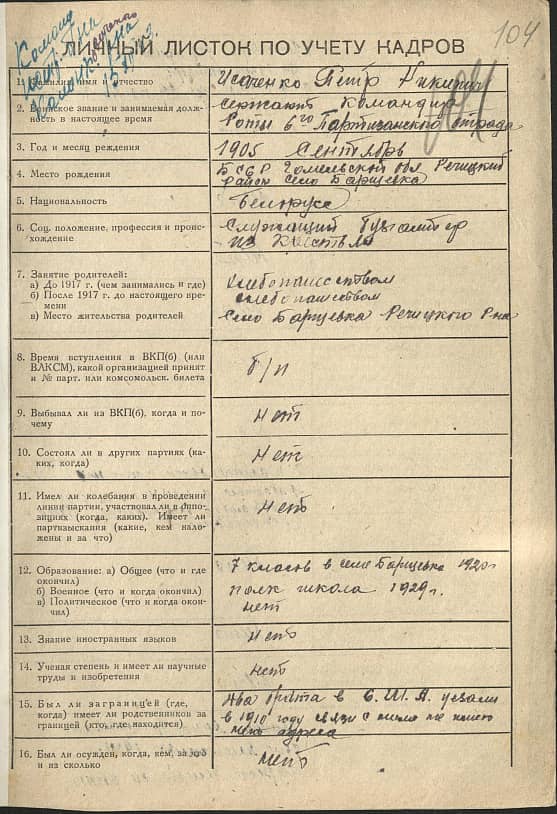 104
ЛИЧНЫЙ ЛИСТОК ПО УЧЕТУ КАДРОВ
1. Фамилия, имя и отчество
Исаченко Петр
2. Воинское звание и занимаемая долж-
ность в настоящее время
Сержант Командир
Роты 6го Партизанского отряда
3. Год и месяц рождения
1905 Сентябрь
4. Место рождения
БССР Гомельской обл Речицкий
район село Борщевка
5. Национальность
Белорусс
6. Соц. положение, профессия и проис-
хождение
Служащий бухгалтер
из
7. Занятие родителей:
а) До 1917 г. (чем занимались и где)
б) После 1917 г. до настоящего вре-
мени
в) Место жительства родителей
хлебопашеством
хлебопашеством
Село Борщевка Речицкого Р на
8. Время вступления в ВКП(б) (или
ВЛКСМ), какой организацией принят
и № парт. или комсомольск. билета
б/п
9. Выбывал ли из ВКП(б), когда и по-
чему
нет
10. Состоял ли в других партиях (ка-
ких, когда)
нет
11. Имел ли колебания в проведении
линии партии, участвовал ли в оппо-
зициях (когда, каких). Имеет ли
партвзыскания (какие, кем нало-
жены и за что)
нет
12. Образование: а) Общее (что и где
окончил)
б) Военное (что и когда окончил)
в) Политическое (что и когда окон-
чил)
7 класов в селе Борщевка 1920г
полк школа 1929 г.
нет
13. Знание иностранных языков
нет
14. Ученая степень и имеет ли научные
труды и изобретения
нет
15. Был ли заграницей (где,
когда) имеет ли родственников за
границей (кто, где, находится).
два брата в С.Ш.А. уехали
в 1910 году связи с ними не имею
адреса
16. Был ли осужден, когда, кем, за что
и из сколько
нет